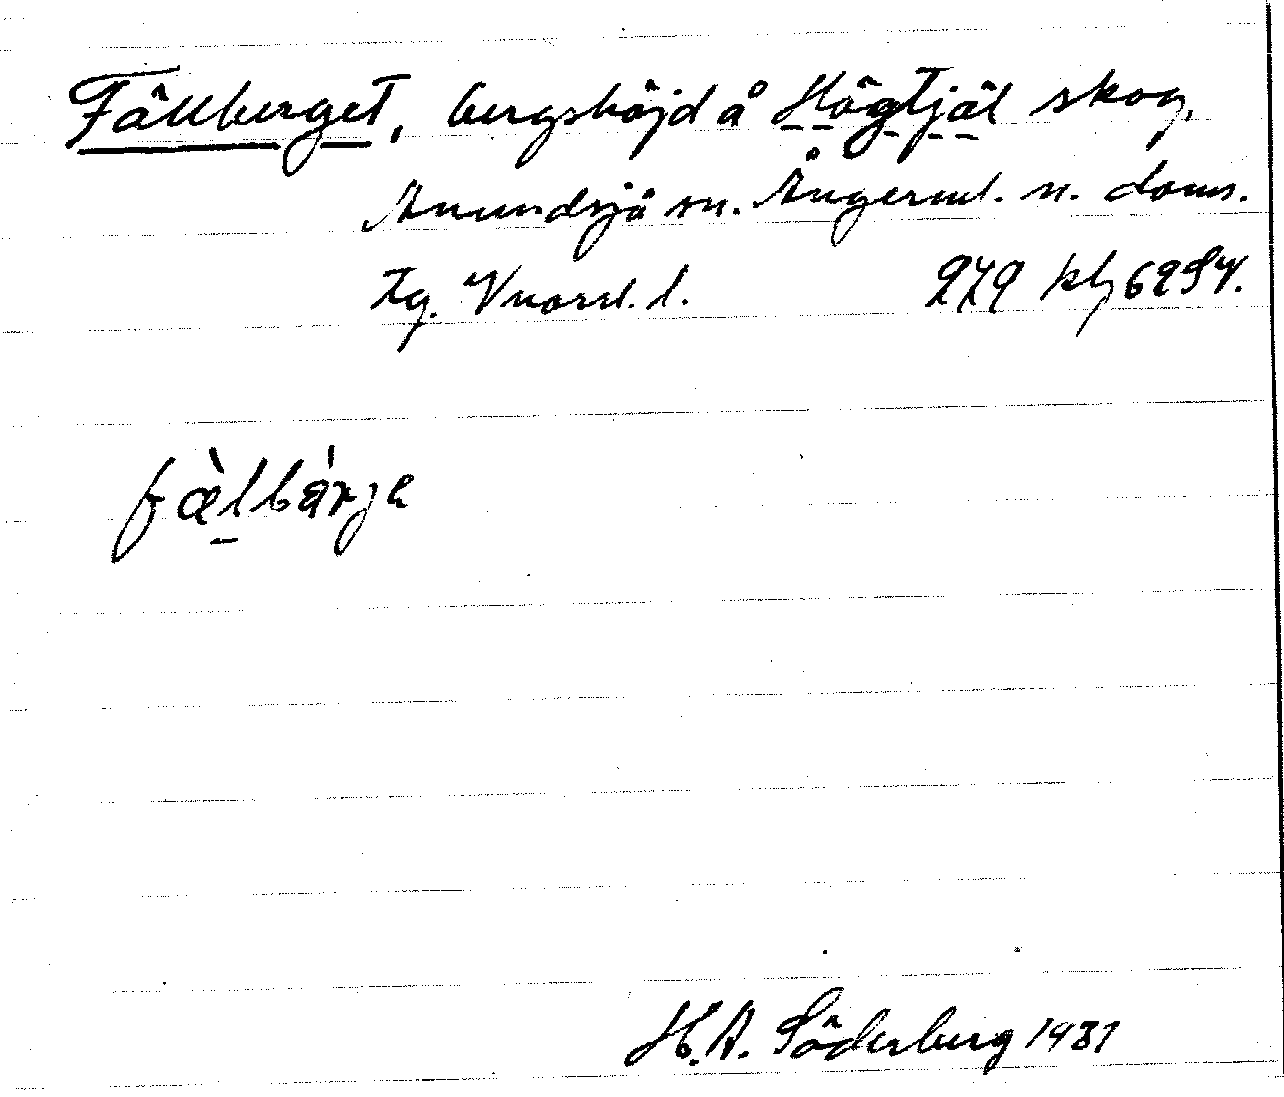 Fällberget, bergshöjd å Högtjäl skog,
Anundsjö sn. Ångerml. n. doms.
Tg. Vnorrl. l. 279 kbl 6294.
fæ̀lbárje
H. A. Söderberg 1931